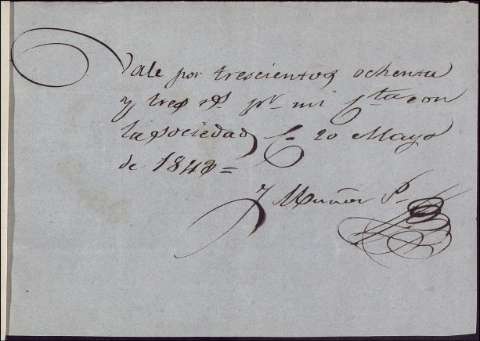 Vale por trescientos ochenta
y tres rs. pr. mi cta con
la sociedad 20 Mayo
de 1848=
Muñoz P.